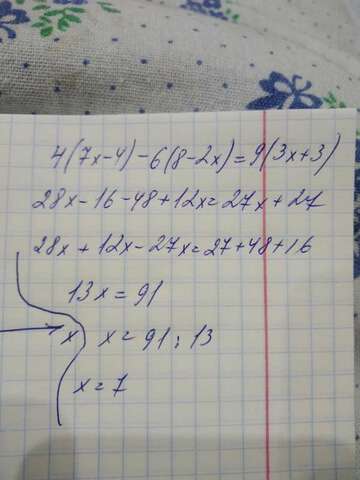 4(7x-4)-6(8-2x)=9(3x+3)
28x-16-48+12x=27x+27
28x+12x-27x=27+48+16
13x=91
x x=91:13
x=7